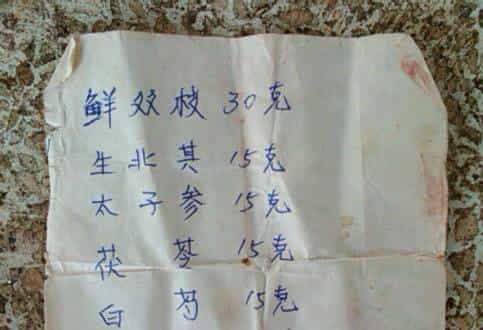 鲜双枝 30克
生北其 15克
太子参 15克
茯苓 15克
白芍 15克